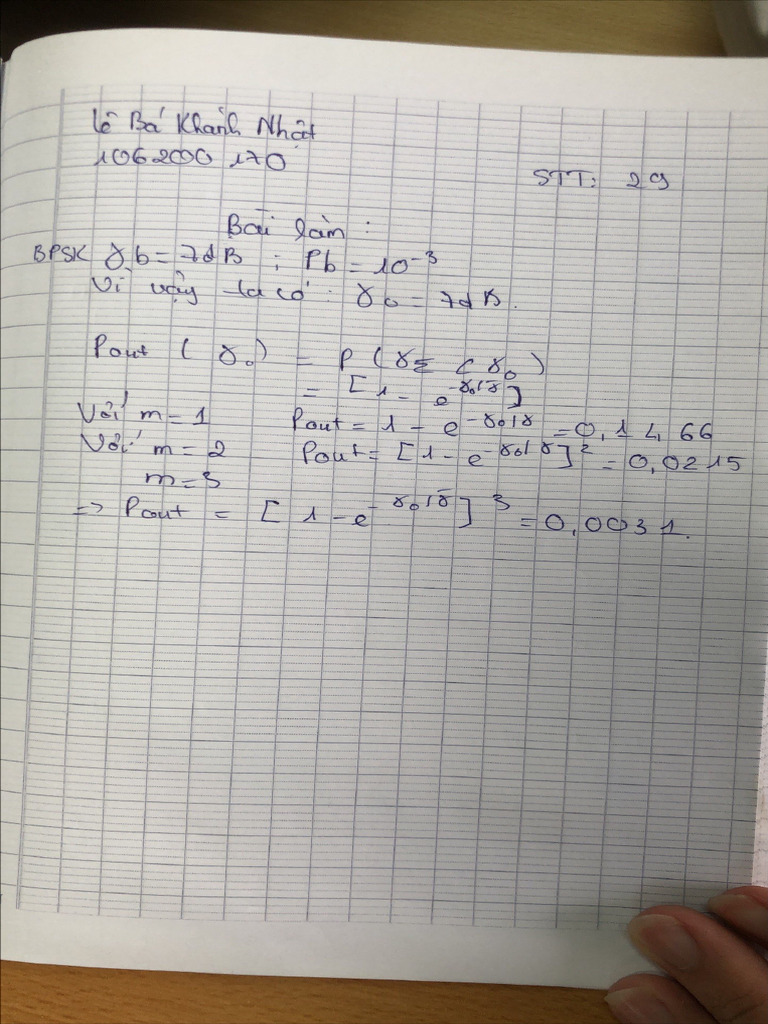 Lê Bá Khánh Nhật
106200170
STT: 29
Bài làm:
BPSK γb = 7dB ; Pb = 10⁻³
Vì vậy ta có: γ₀ = 7dB.
Pout (γ₀) = P(γΣ < γ₀)
= [1 - e^-γ₀/γ̄]
Với m = 1 Pout = 1 - e^-γ₀/γ̄ = 0,1466
Với m = 2 Pout = [1 - e^-γ₀/γ̄]² = 0,0215
m = 3
=> Pout = [1 - e^-γ₀/γ̄]³ = 0,0031.